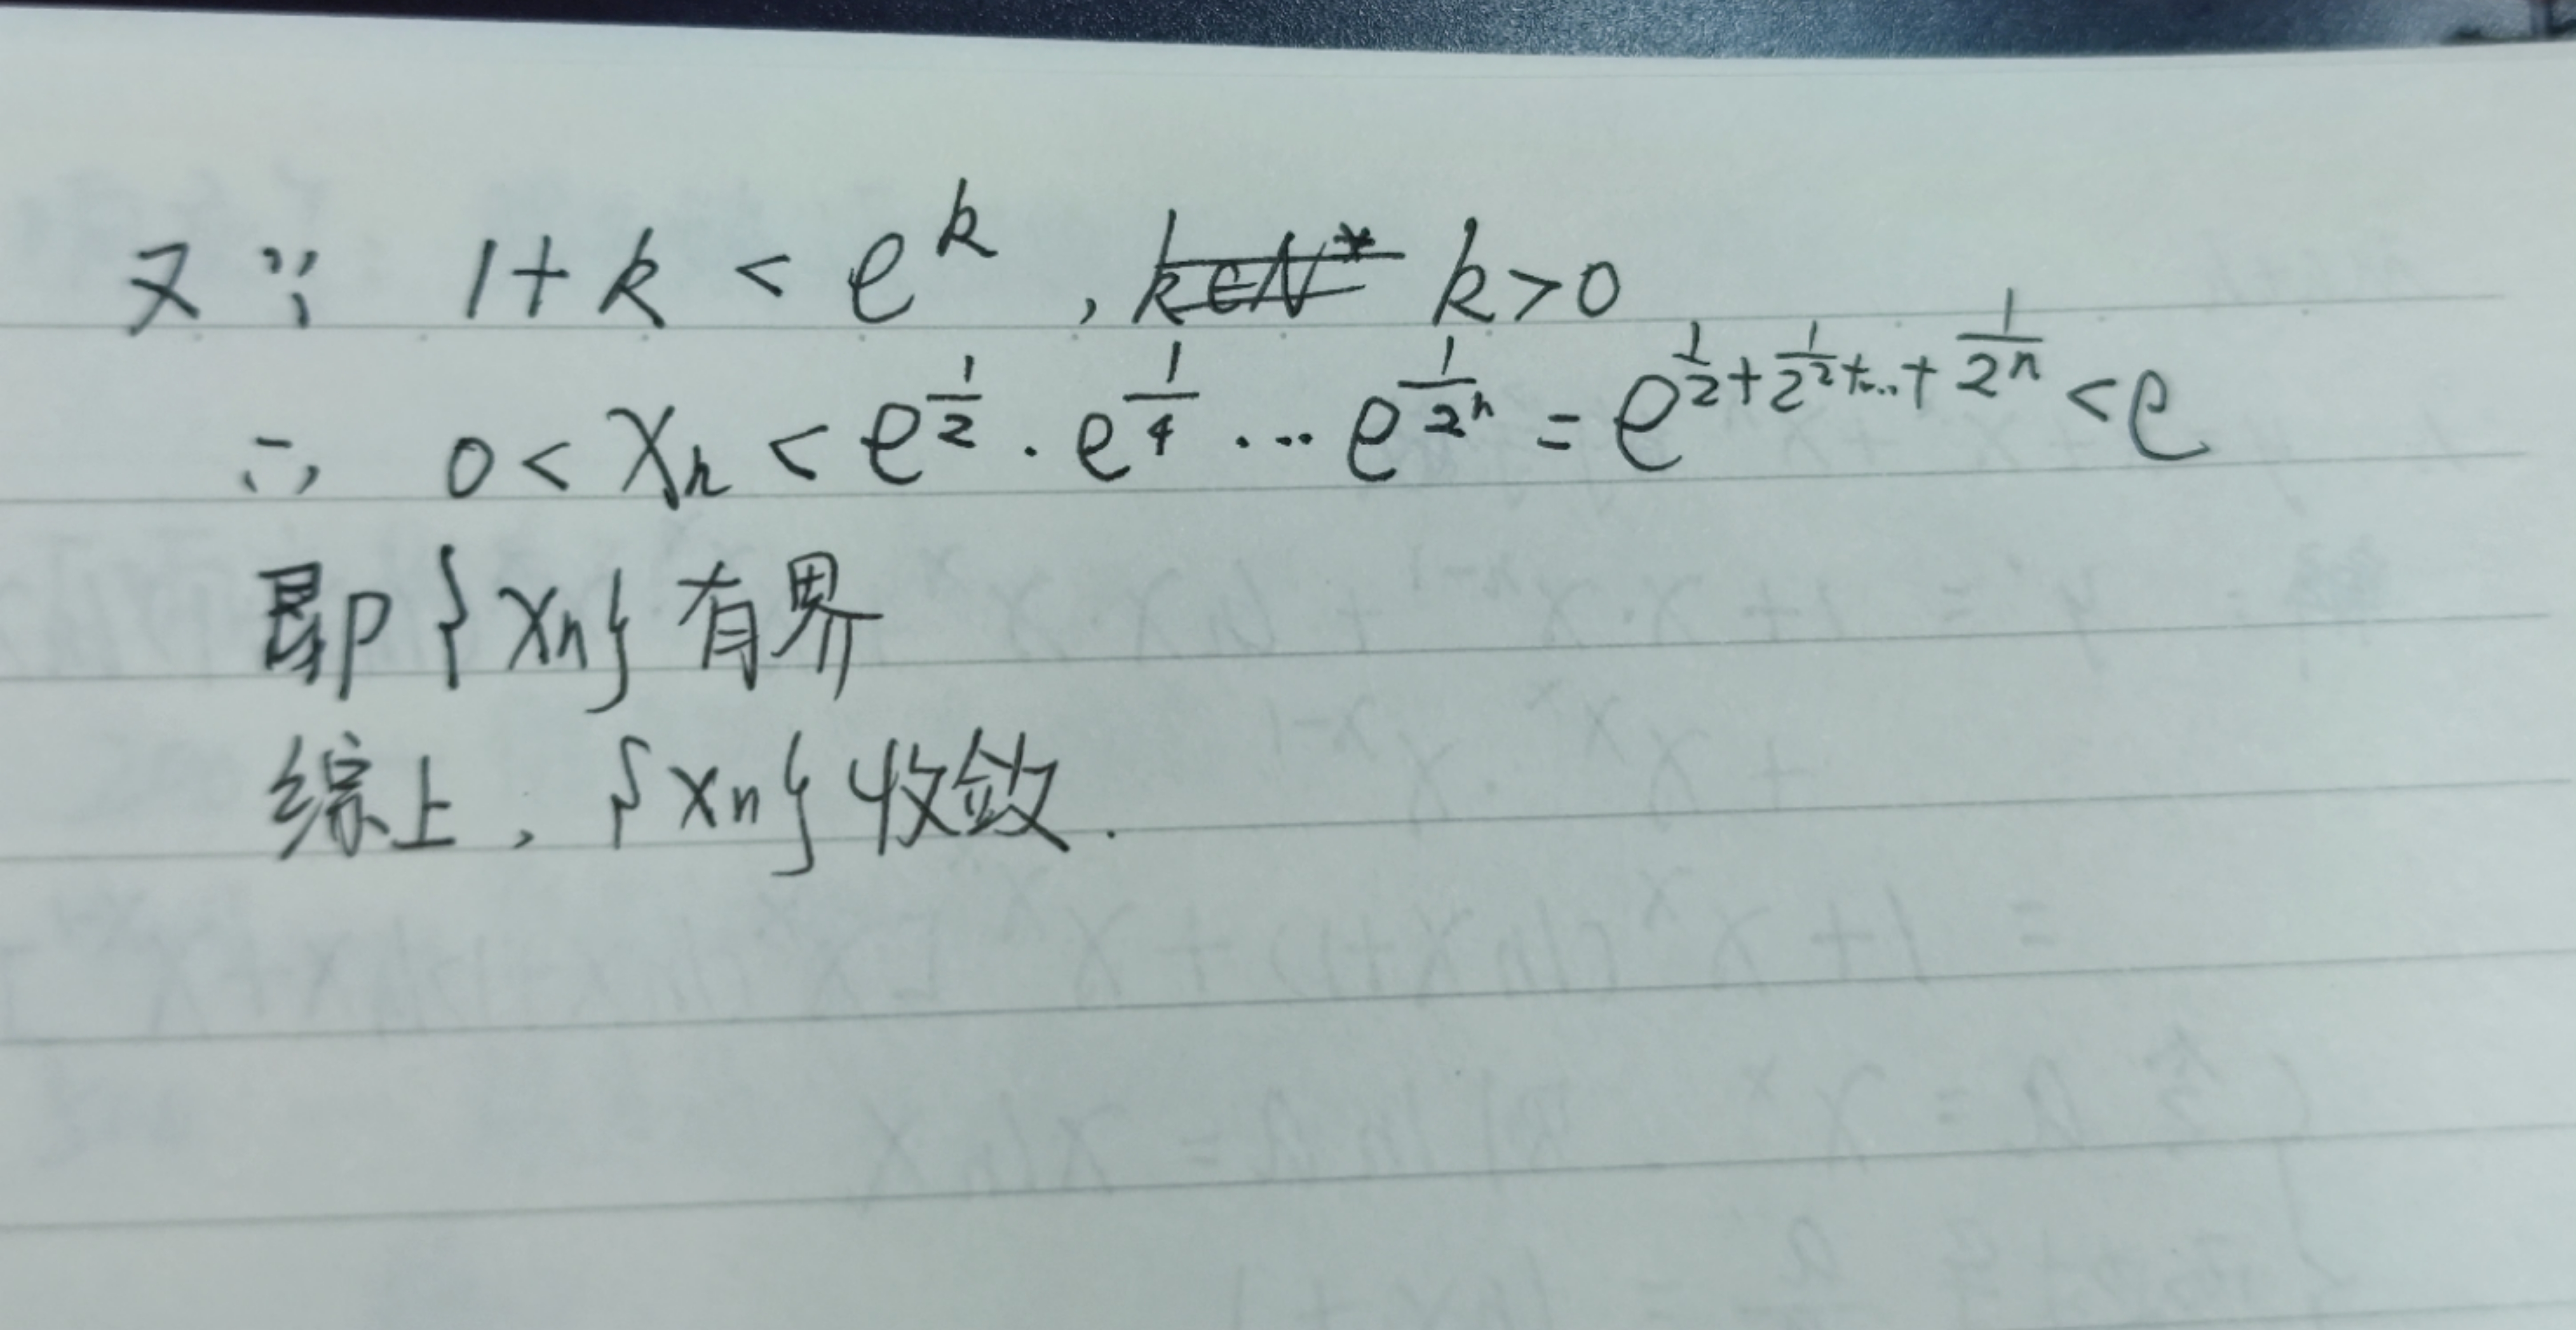 又∵ 1+k < e^k , k>0
∴ 0 < Xn < e^{1/2} · e^{1/4} ··· e^{1/2^n} = e^{1/2+1/2^2+...+1/2^n} < e
即{Xn}有界
综上，{Xn}收敛.